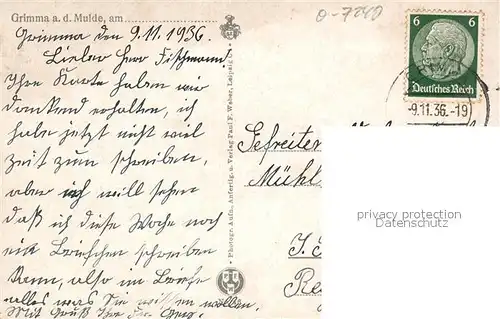 Grimma a. d. Mulde, am
Grimma den 9.11.1936.
Lieber Herr Fischmann!
Ihre Karte haben wir
dankend erhalten, ich
habe jetzt nicht viel
Zeit zum schreiben,
aber ich will sehen
daß ich diese Woche noch
ein Briefchen schreiben
kann, also im Briefe
alles was Sie wissen wollen.
Mit Gruß Ihre
Photogr. Aufn., Anfertig. u. Verlag Paul F. Weber, Leipzig
0-7240
6 6
Deutsches Reich
-9.11.36.-19
Gefreiter
Mühl
privacy protection
Datenschutz